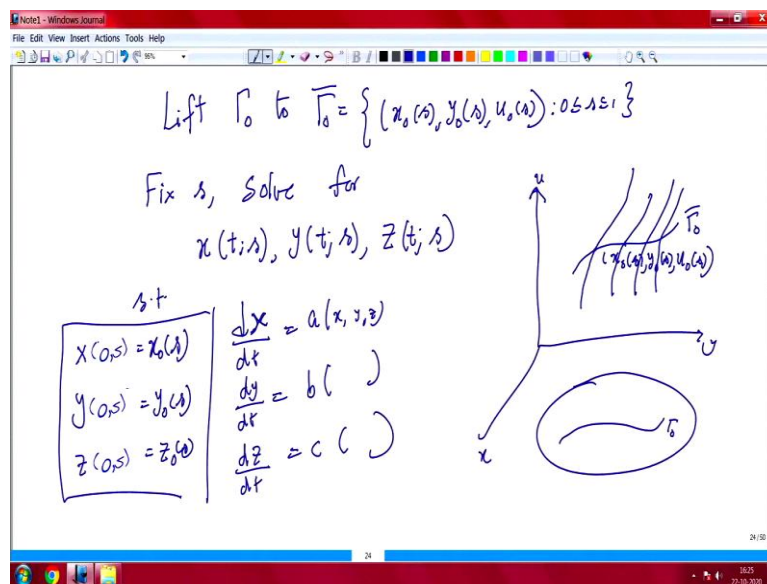 Note1 - Windows Journal
File Edit View Insert Actions Tools Help
96%
Lift Γ₀ to Γ̅₀ = { (x₀(s), y₀(s), u₀(s)) : 0 ≤ s ≤ 1 }
Fix s, Solve for
x(t;s), y(t;s), z(t;s)
s.t
x(0,s) = x₀(s)
y(0,s) = y₀(s)
z(0,s) = z₀(s)
dx/dt = a(x, y, z)
dy/dt = b( )
dz/dt = c( )
u
Γ̅₀
(x₀(s), y₀(s), u₀(s))
y
Γ₀
x
24/50
24
16:25
22-10-2020